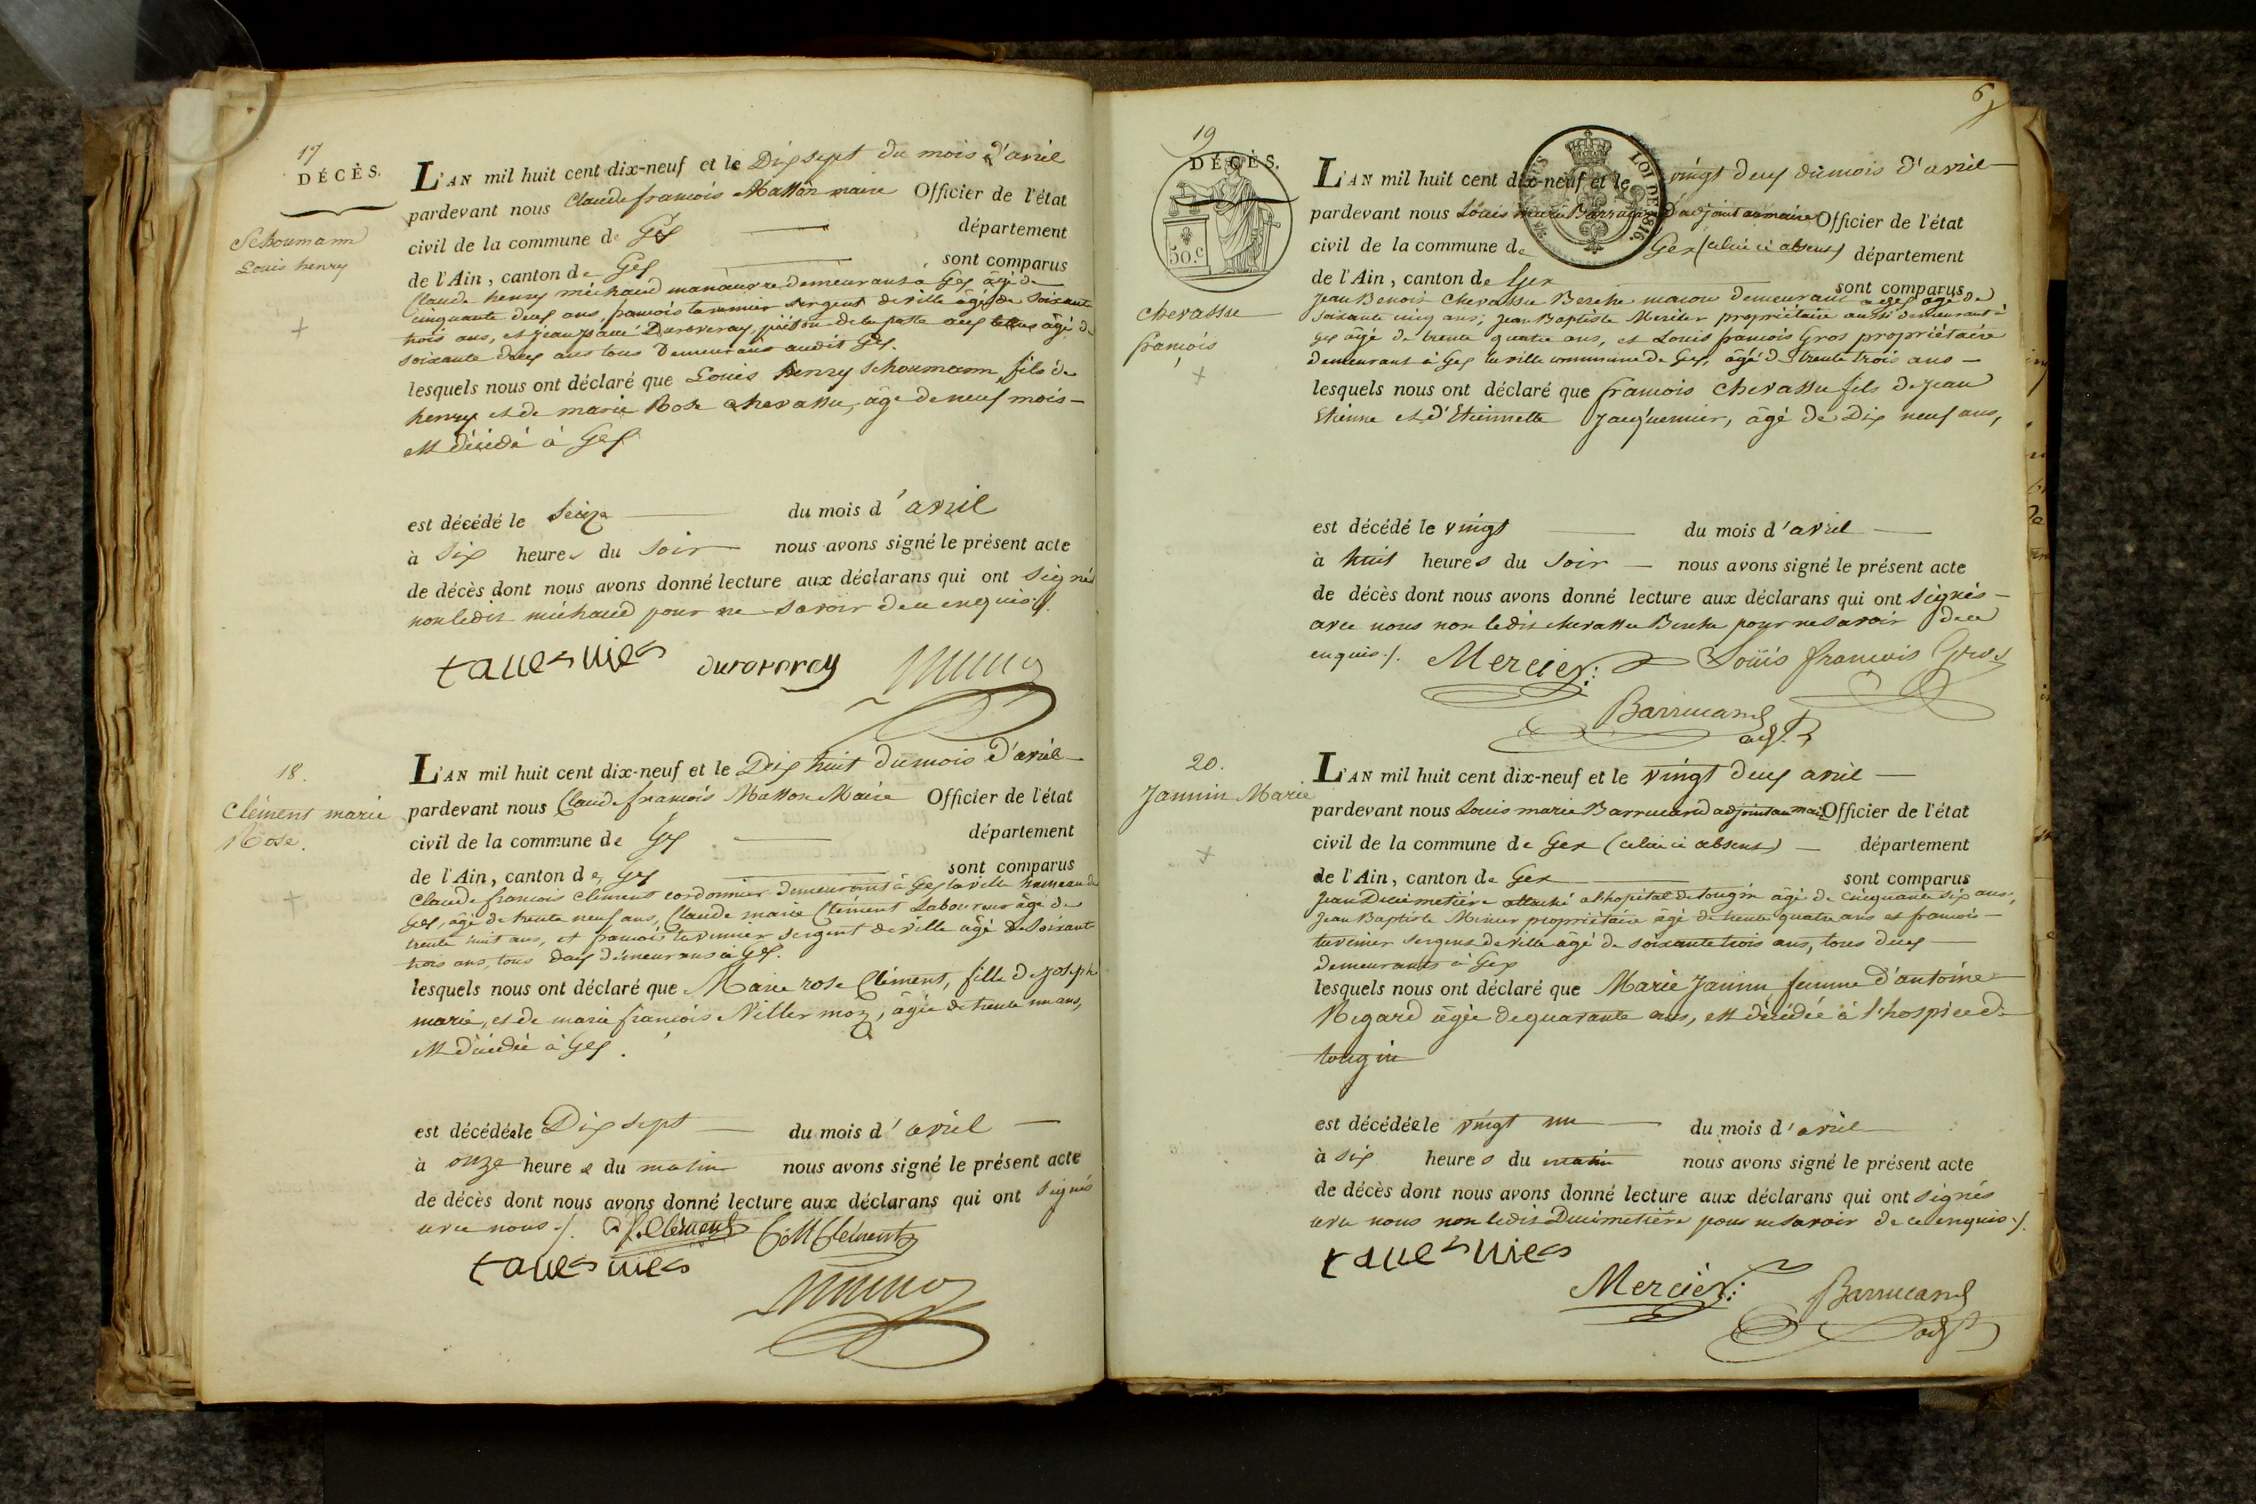 17
DÉCÈS.
Schoumann
Louis henry
+
L'AN mil huit cent dix-neuf et le Dix sept du mois d'avril
pardevant nous Claude francois Masson maire Officier de l'état
civil de la commune de Gex département
de l'Ain, canton de Gex sont comparus
Claude henry michaud manœuvre demeurant à Gex âgé de
cinquante deux ans, francois tavernier sergent de ville âgé de soixante
trois ans, et jean Duroveray piéton de la poste aux lettres âgé de
soixante deux ans tous Demeurans audit Gex.
lesquels nous ont déclaré que Louis henry Schoumann fils de
henry et de marie Rose chevassu, âgé de neuf mois -
est décédé à Gex
est décédé le Seize du mois d'avril
à six heures du soir nous avons signé le présent acte
de décès dont nous avons donné lecture aux déclarans qui ont signés
non ledit michaud pour ne savoir de ce enquis ./.
duroveray
18.
Clément marie
Rose.
+
L'AN mil huit cent dix-neuf et le Dix huit du mois d'avril
pardevant nous Claude francois Masson Maire Officier de l'état
civil de la commune de Gex département
de l'Ain, canton de Gex sont comparus
Claude francois clément cordonnier demeurant à Gex la ville hameau de
Gex, âgé de trente neuf ans, Claude marie Clément Laboureur âgé de
trente huit ans, et francois tavernier sergent de ville âgé de soixante
trois ans, tous deux demeurans à Gex.
lesquels nous ont déclaré que Marie rose Clément, fille de joseph
marie, et de marie francois Villermoz, âgée de trente un ans,
est décédée à Gex.
est décédée le Dix sept du mois d'avril
à onze heures du matin nous avons signé le présent acte
de décès dont nous avons donné lecture aux déclarans qui ont signés
avec nous ./. Clément CM Clément
6
19
DÉCÈS.
50.c
LOI DE 1816.
chevassu
francois
+
L'AN mil huit cent dix-neuf et le vingt deux du mois d'avril
pardevant nous Louis marie Barrucand adjoint au maire Officier de l'état
civil de la commune de Gex (celui ci absent) département
de l'Ain, canton de Gex sont comparus
Jean Benoit chevassu Berche macon demeurant à Gex âgé de
soixante cinq ans; Jean Baptiste Mercier propriétaire aussi demeurant à
Gex âgé de trente quatre ans, et Louis francois Gros propriétaire
demeurant à Gex la ville commune de Gex, âgé de trente trois ans -
lesquels nous ont déclaré que francois chevassu fils de jean
Etienne et d'Etiennette Jacquemier, âgé de Dix neuf ans,
est décédé le vingt du mois d'avril
à huit heures du soir nous avons signé le présent acte
de décès dont nous avons donné lecture aux déclarans qui ont signés -
avec nous non ledit chevassu Berche pour ne savoir de ce
enquis ./. Mercier Louis francois Gros
Barrucand
adjt
20.
Jannin Marie
+
L'AN mil huit cent dix-neuf et le vingt deux avril
pardevant nous Louis marie Barrucand adjoint au maire Officier de l'état
civil de la commune de Gex (celui ci absent) département
de l'Ain, canton de Gex sont comparus
Jean Ducimetière attaché a l'hopital de tougin âgé de cinquante six ans;
Jean Baptiste Mercier propriétaire âgé de trente quatre ans et francois
tavernier sergent de ville âgé de soixante trois ans, tous deux
demeurants à Gex
lesquels nous ont déclaré que Marie Jannin femme d'antoine
Regard âgée de quarante ans, est décédée à l'hospice de
tougin
est décédée le vingt un du mois d'avril
à six heures du matin nous avons signé le présent acte
de décès dont nous avons donné lecture aux déclarans qui ont signés
avec nous non ledit Ducimetière pour ne savoir de ce enquis ./.
Mercier
Barrucand
adjt